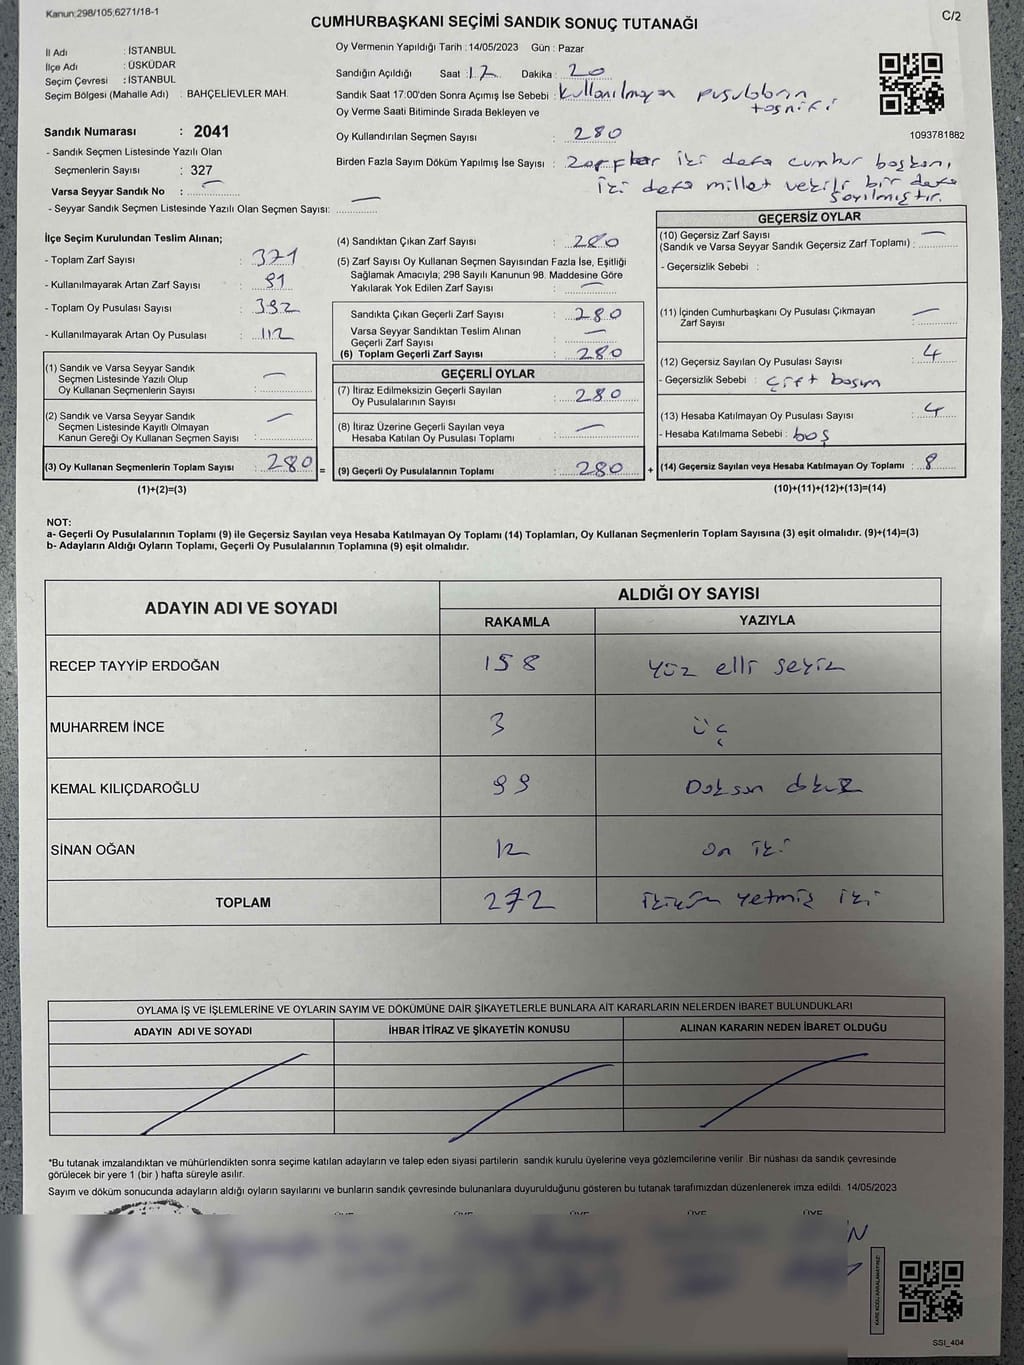 Kanun:298/105,6271/18-1
C/2
CUMHURBAŞKANI SEÇİMİ SANDIK SONUÇ TUTANAĞI
İl Adı : İSTANBUL
İlçe Adı : ÜSKÜDAR
Seçim Çevresi : İSTANBUL
Seçim Bölgesi (Mahalle Adı) : BAHÇELİEVLER MAH.
Sandık Numarası : 2041
- Sandık Seçmen Listesinde Yazılı Olan
Seçmenlerin Sayısı : 327
Varsa Seyyar Sandık No : —
- Seyyar Sandık Seçmen Listesinde Yazılı Olan Seçmen Sayısı: —
Oy Vermenin Yapıldığı Tarih : 14/05/2023 Gün : Pazar
Sandığın Açıldığı Saat : 17 Dakika : 20
Sandık Saat 17:00'den Sonra Açımış İse Sebebi : Kullanılmayan pusulaların
tasnifi
Oy Verme Saati Bitiminde Sırada Bekleyen ve
Oy Kullandırılan Seçmen Sayısı : 280
Birden Fazla Sayım Döküm Yapılmış İse Sayısı : Zarflar iki defa cumhur başkanı,
iki defa millet vekili bir defa
sayılmıştır.
1093781882
İlçe Seçim Kurulundan Teslim Alınan;
- Toplam Zarf Sayısı : 371
- Kullanılmayarak Artan Zarf Sayısı : 91
- Toplam Oy Pusulası Sayısı : 392
- Kullanılmayarak Artan Oy Pusulası : 112
(1) Sandık ve Varsa Seyyar Sandık
Seçmen Listesinde Yazılı Olup
Oy Kullanan Seçmenlerin Sayısı : —
(2) Sandık ve Varsa Seyyar Sandık
Seçmen Listesinde Kayıtlı Olmayan
Kanun Gereği Oy Kullanan Seçmen Sayısı : —
(3) Oy Kullanan Seçmenlerin Toplam Sayısı : 280 =
(1)+(2)=(3)
(4) Sandıktan Çıkan Zarf Sayısı : 280
(5) Zarf Sayısı Oy Kullanan Seçmen Sayısından Fazla İse, Eşitliği
Sağlamak Amacıyla; 298 Sayılı Kanunun 98. Maddesine Göre
Yakılarak Yok Edilen Zarf Sayısı : —
Sandıkta Çıkan Geçerli Zarf Sayısı : 280
Varsa Seyyar Sandıktan Teslim Alınan
Geçerli Zarf Sayısı : —
(6) Toplam Geçerli Zarf Sayısı : 280
GEÇERLİ OYLAR
(7) İtiraz Edilmeksizin Geçerli Sayılan
Oy Pusulalarının Sayısı : 280
(8) İtiraz Üzerine Geçerli Sayılan veya
Hesaba Katılan Oy Pusulası Toplamı : —
(9) Geçerli Oy Pusulalarının Toplamı : 280 +
GEÇERSİZ OYLAR
(10) Geçersiz Zarf Sayısı —
(Sandık ve Varsa Seyyar Sandık Geçersiz Zarf Toplamı) :
- Geçersizlik Sebebi :
(11) İçinden Cumhurbaşkanı Oy Pusulası Çıkmayan
Zarf Sayısı : —
(12) Geçersiz Sayılan Oy Pusulası Sayısı : 4
- Geçersizlik Sebebi : Çift basım
(13) Hesaba Katılmayan Oy Pusulası Sayısı : 4
- Hesaba Katılmama Sebebi : boş
(14) Geçersiz Sayılan veya Hesaba Katılmayan Oy Toplamı : 8
(10)+(11)+(12)+(13)=(14)
NOT:
a- Geçerli Oy Pusulalarının Toplamı (9) ile Geçersiz Sayılan veya Hesaba Katılmayan Oy Toplamı (14) Toplamları, Oy Kullanan Seçmenlerin Toplam Sayısına (3) eşit olmalıdır. (9)+(14)=(3)
b- Adayların Aldığı Oyların Toplamı, Geçerli Oy Pusulalarının Toplamına (9) eşit olmalıdır.
ADAYIN ADI VE SOYADI ALDIĞI OY SAYISI
RAKAMLA YAZIYLA
RECEP TAYYİP ERDOĞAN 158 Yüz elli sekiz
MUHARREM İNCE 3 üç
KEMAL KILIÇDAROĞLU 99 Doksan dokuz
SİNAN OĞAN 12 on iki
TOPLAM 272 ikiyüz yetmiş iki
OYLAMA İŞ VE İŞLEMLERİNE VE OYLARIN SAYIM VE DÖKÜMÜNE DAİR ŞİKAYETLERLE BUNLARA AİT KARARLARIN NELERDEN İBARET BULUNDUKLARI
ADAYIN ADI VE SOYADI İHBAR İTİRAZ VE ŞİKAYETİN KONUSU ALINAN KARARIN NEDEN İBARET OLDUĞU
*Bu tutanak imzalandıktan ve mühürlendikten sonra seçime katılan adayların ve talep eden siyasi partilerin sandık kurulu üyelerine veya gözlemcilerine verilir. Bir nüshası da sandık çevresinde
görülecek bir yere 1 (bir) hafta süreyle asılır.
Sayım ve döküm sonucunda adayların aldığı oyların sayılarını ve bunların sandık çevresinde bulunanlara duyurulduğunu gösteren bu tutanak tarafımızdan düzenlenerek imza edildi. 14/05/2023
ÜYE ÜYE ÜYE ÜYE ÜYE
SSI_404